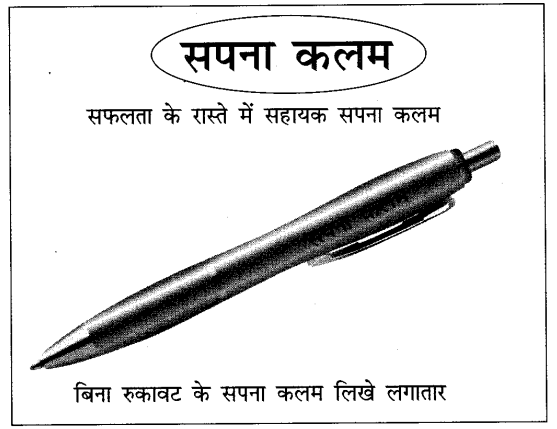 सपना कलम
सफलता के रास्ते में सहायक सपना कलम
बिना रुकावट के सपना कलम लिखे लगातार